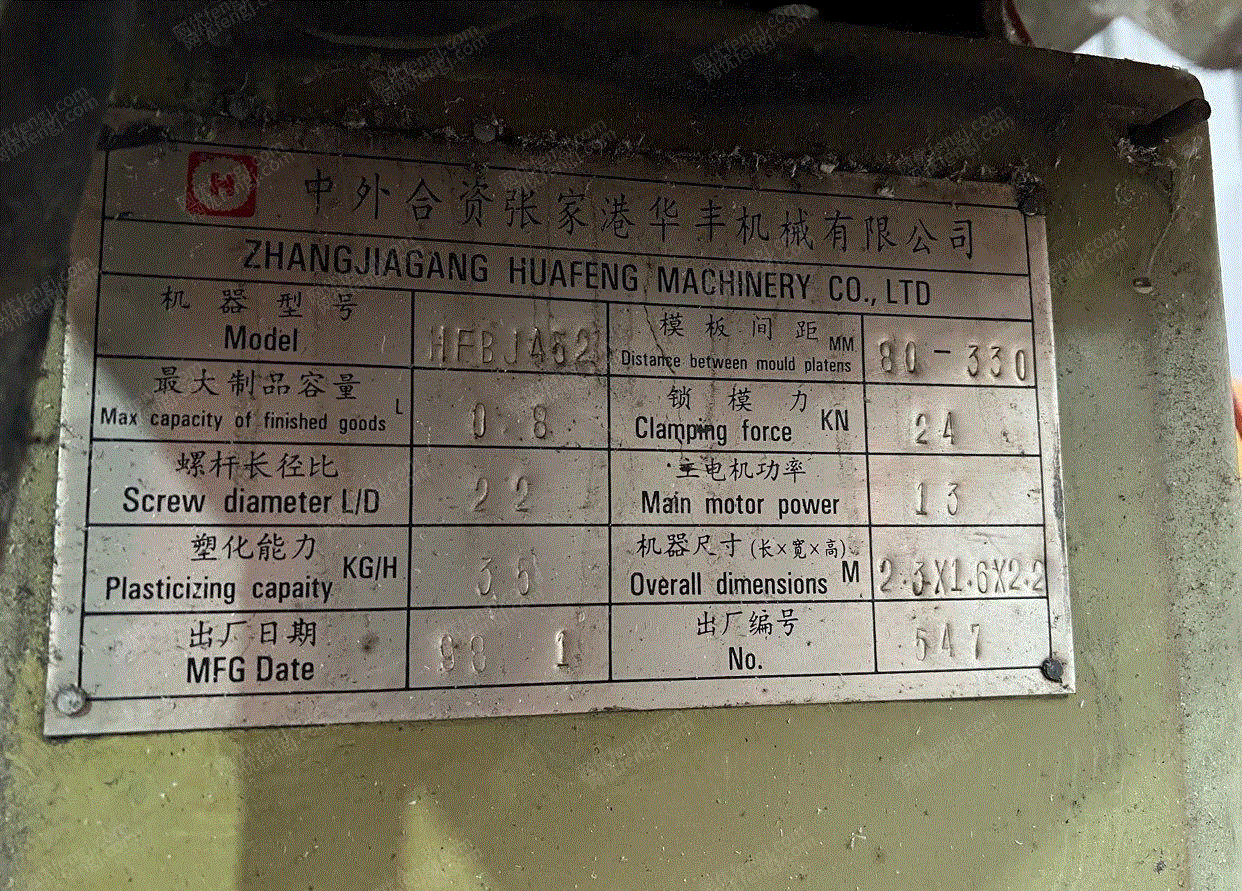 H 中外合资张家港华丰机械有限公司
ZHANGJIAGANG HUAFENG MACHINERY CO., LTD
机器型号
Model
HFBJ452
模板间距 MM
Distance between mould platens
80-330
最大制品容量 L
Max capacity of finished goods
0.8
锁模力 KN
Clamping force
24
螺杆长径比
Screw diameter L/D
22
主电机功率
Main motor power
13
塑化能力 KG/H
Plasticizing capaity
35
机器尺寸(长×宽×高) M
Overall dimensions
2.3X1.6X2.2
出厂日期
MFG Date
98 1
出厂编号
No.
547